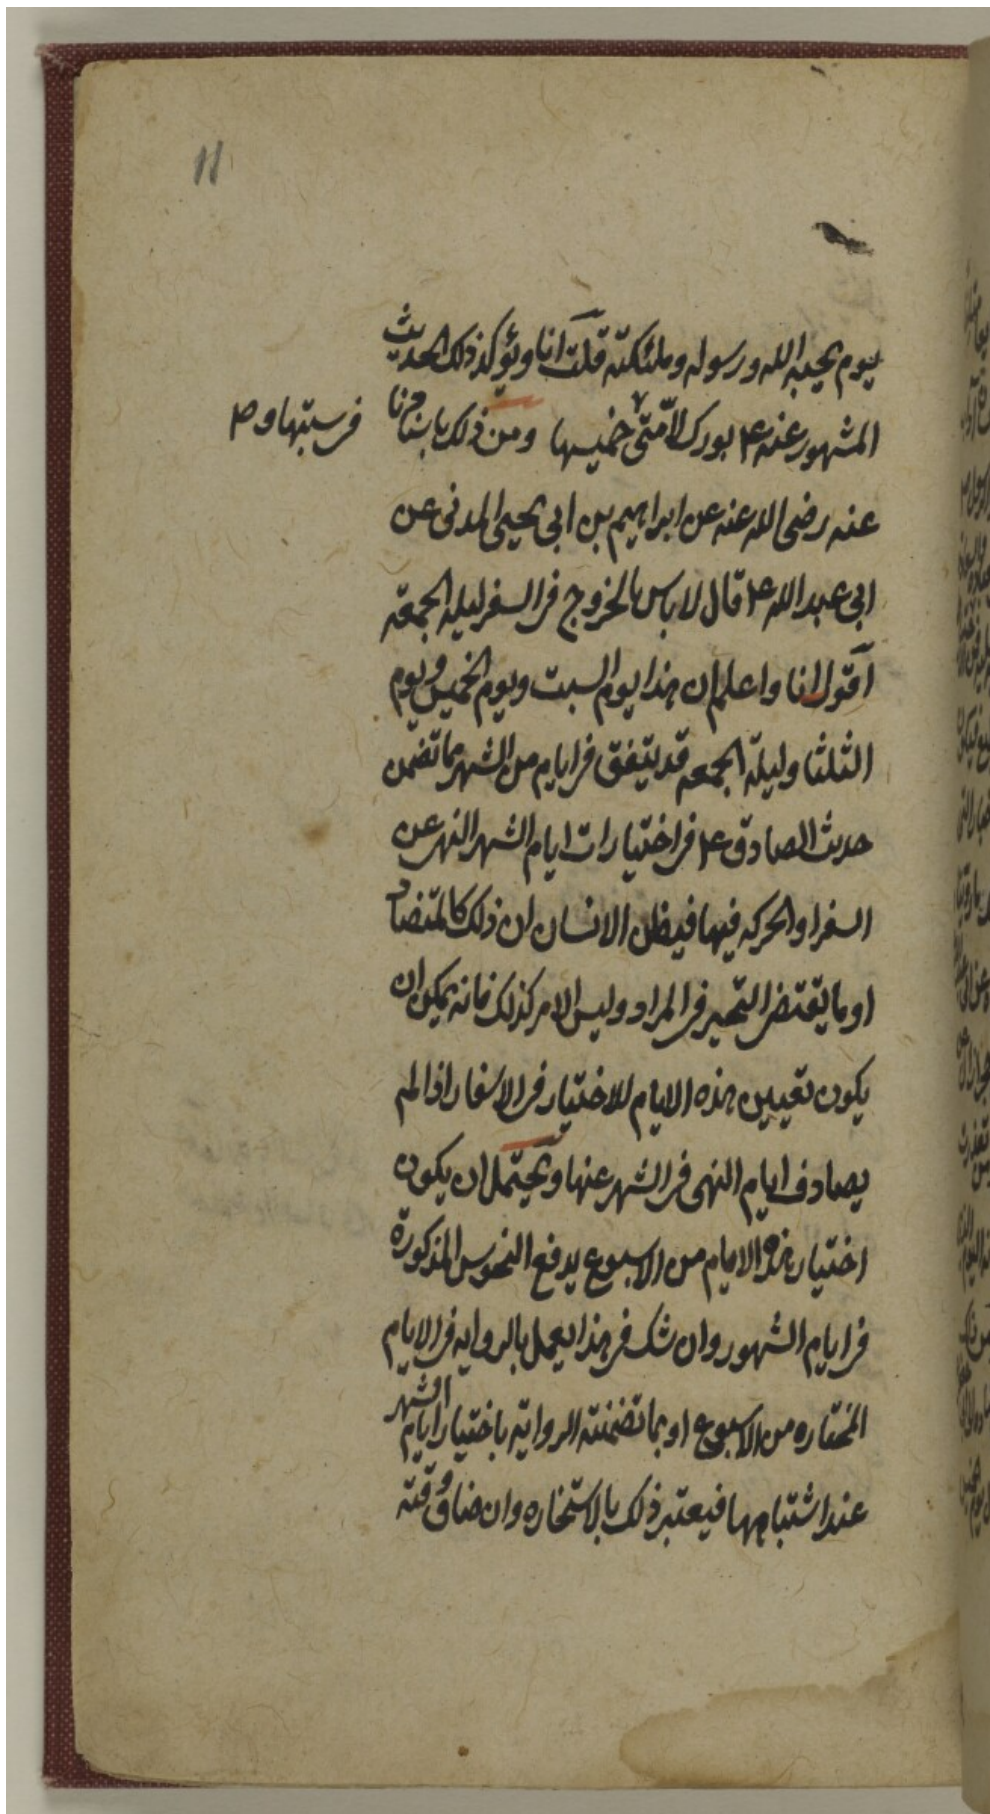 11
يوم يحبه الله ورسوله وملئكته قلت انا ويؤكد ذلك الحديث
المشهور عنه ع بورك لامتى خميسها ومن ذلك باسنادنا
فى سبتها و ص
عنه رضى الله عنه عن ابراهيم بن ابى يحيى المدنى عن
ابى عبد الله ع قال لا باس بالخروج فى السفر ليلة الجمعة
اقول انا واعلم ان هذا يوم السبت ويوم الخميس ويوم
الثلثا وليلة الجمعه قد يتفق فى ايام من الشهر مما تضمن
حديث الصادق ع فى اختيارات ايام الشهر النهى عن
السفر او الحركه فيها فيظن الانسان ان ذلك كالمتضاد
او ما يقتضى التحير فى المراد وليس الامر كذلك فانه يمكن ان
يكون تعيين هذه الايام للاختيار فى الاسفار اذا لم
يصادف ايام النهى فى الشهر عنها ويحتمل ان يكون
اختيار هذه الايام من الاسبوع يدفع النحوس المذكورة
فى ايام الشهور وان شك فى هذا يعمل بالروايه فى الايام
المختاره من الاسبوع او بما تضمنته الروايه باختيار ايام الشهر
عند اشتباهها فيعتبر ذلك بالاستخاره وان ضاق وقته